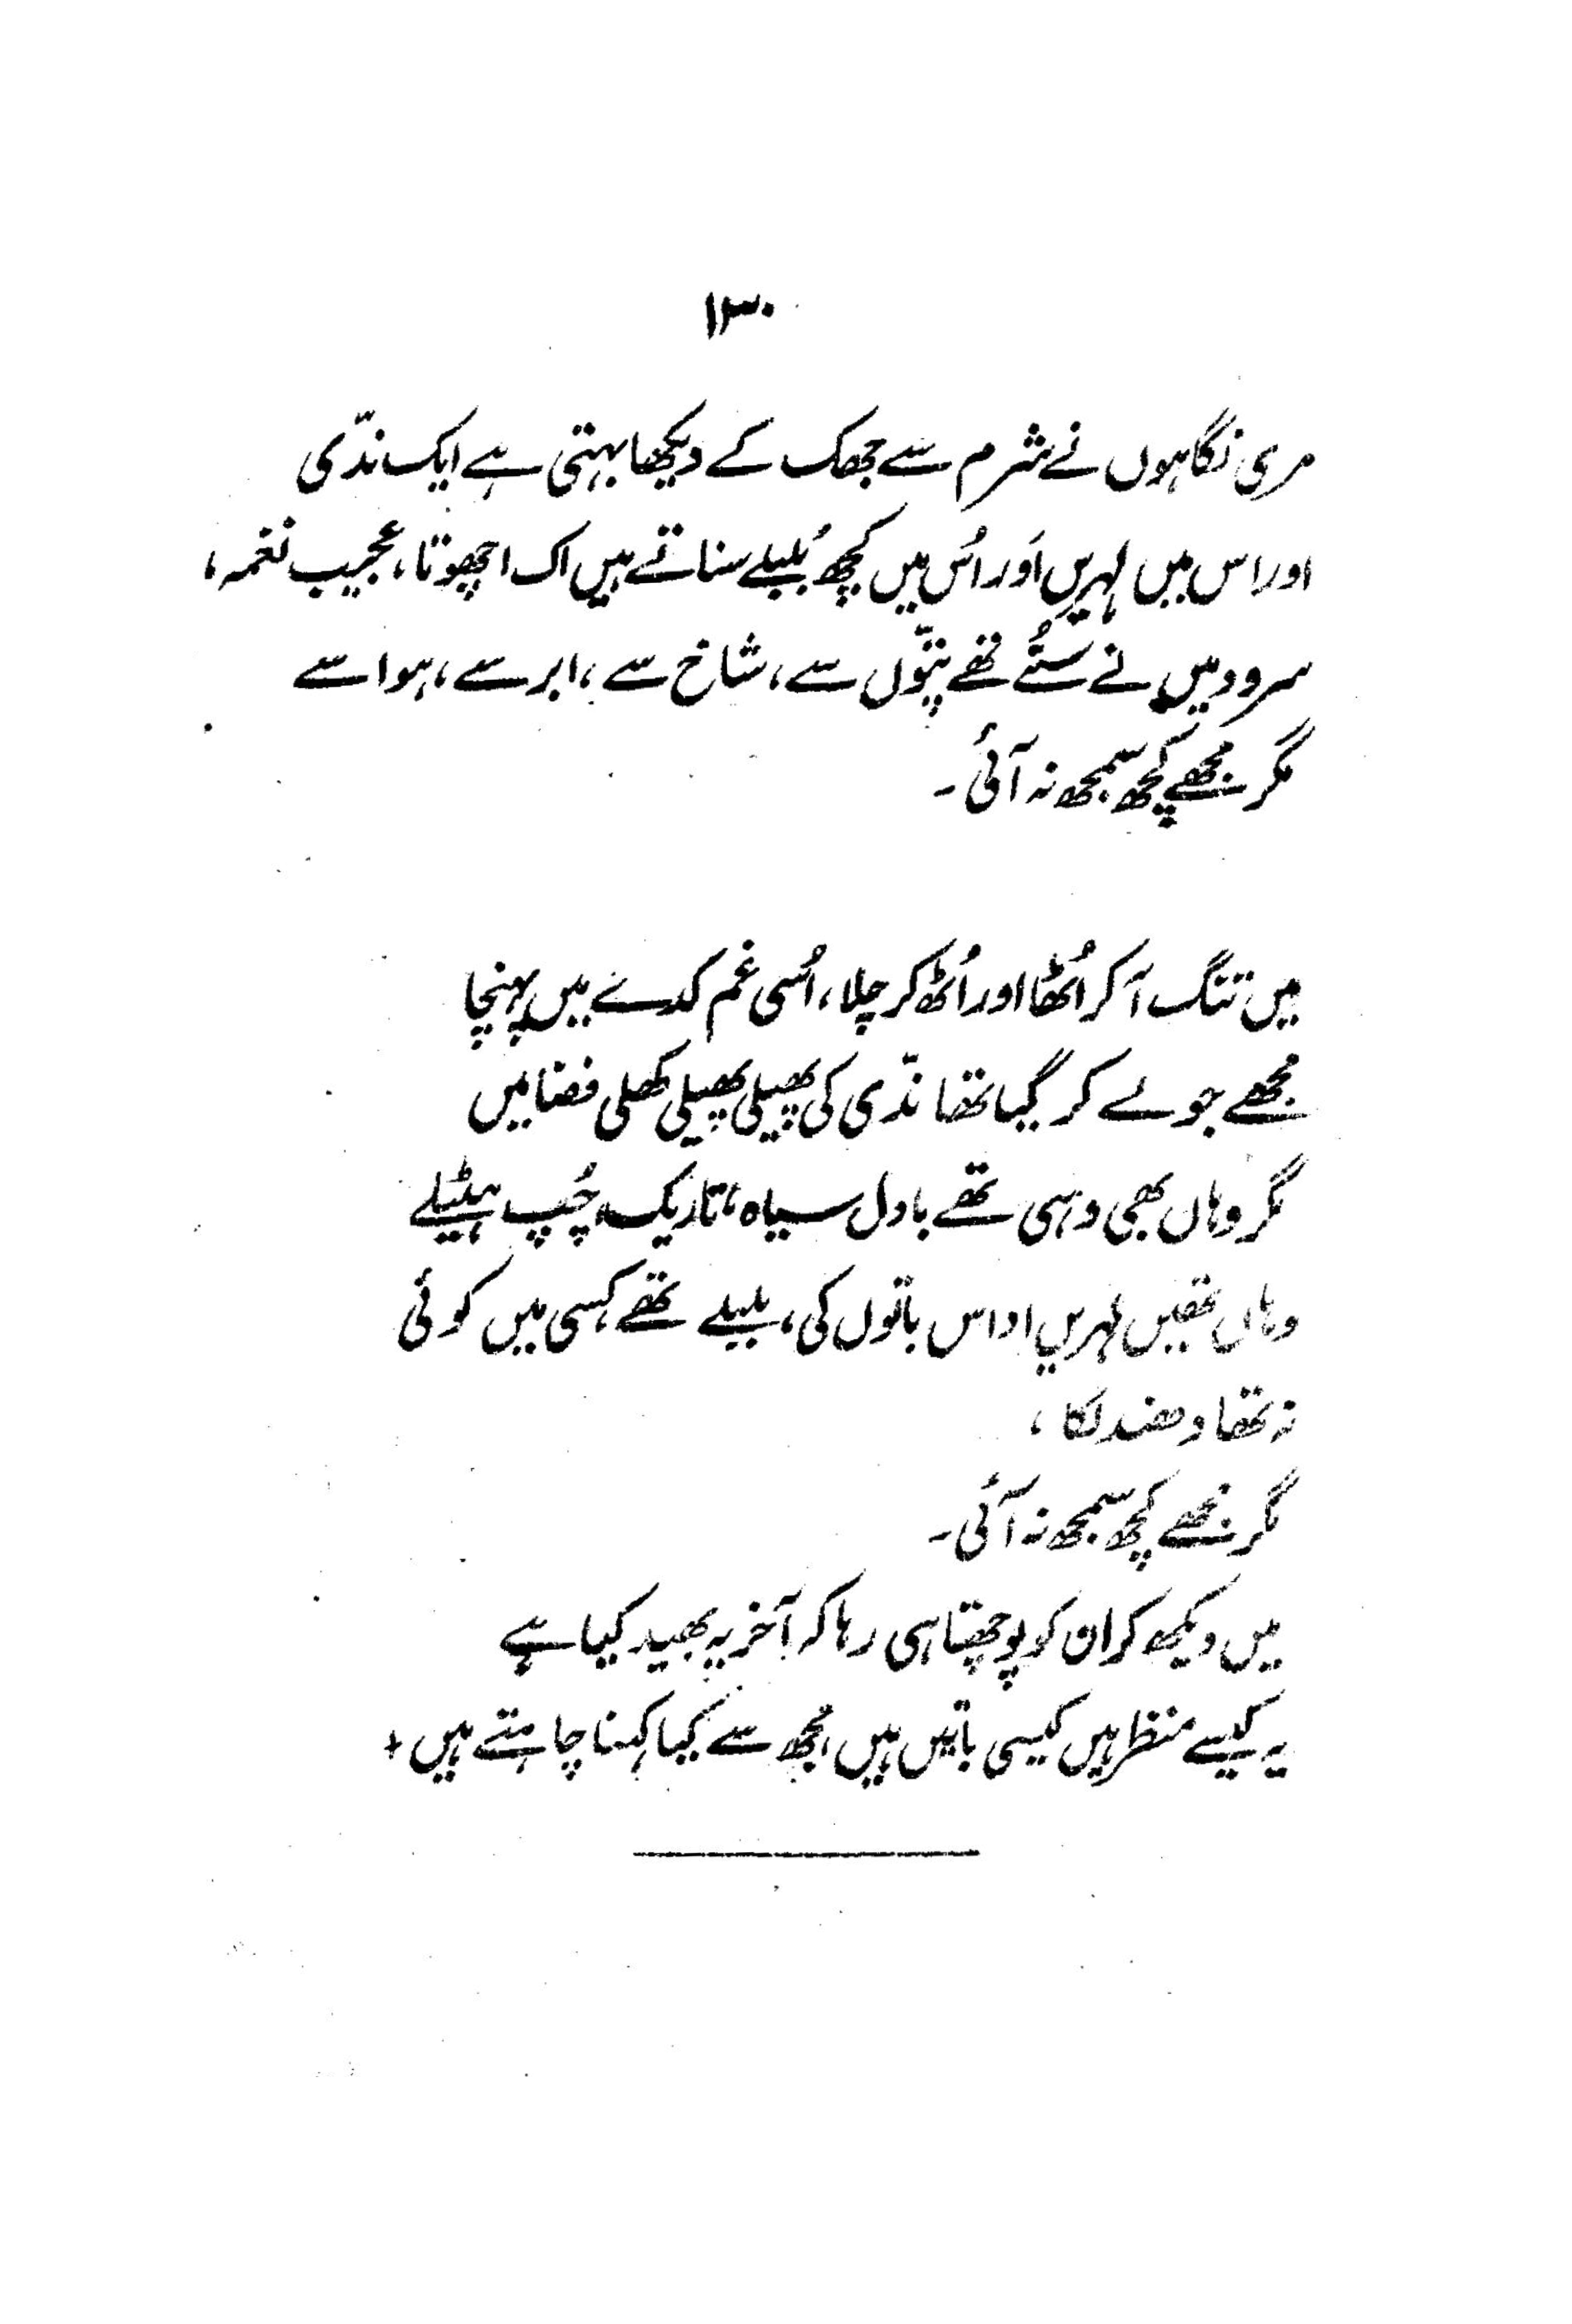 ۱۳۰
مری نگاہوں نے شرم سے جھک کے دیکھا بہتی ہے ایک ندّی
اور اس میں لہریں اَور اُس میں کچھ بُلبلے سناتے ہیں اک اچھوتا، عجیب نغمہ،
سرود میں نے سُنے تھے پتّوں سے، شاخ سے، ابر سے، ہوا سے
مگر مجھے کچھ سمجھ نہ آئی۔
میں تنگ آ کر اُٹھا اور اُٹھ کر چلا، اُسی غم کدے میں پہنچا
مجھے جو لے کر گیا تھا ندّی کی پھیلی پھیلی کھلی فضا میں
مگر وہاں بھی وہی تھے بادل سیاہ، تاریک، چُپ، ہٹیلے
وہاں تھیں لہریں اداس باتوں کی، بلبلے تھے، کسی میں کوئی
نہ تھا دھندلکا،
مگر مجھے کچھ سمجھ نہ آئی۔
میں دیکھ کر ان کو پوچھتا ہی رہا کہ آخر یہ بھید کیا ہے
یہ کیسے منظر ہیں کیسی باتیں ہیں، مجھ سے کیا کہنا چاہتے ہیں +